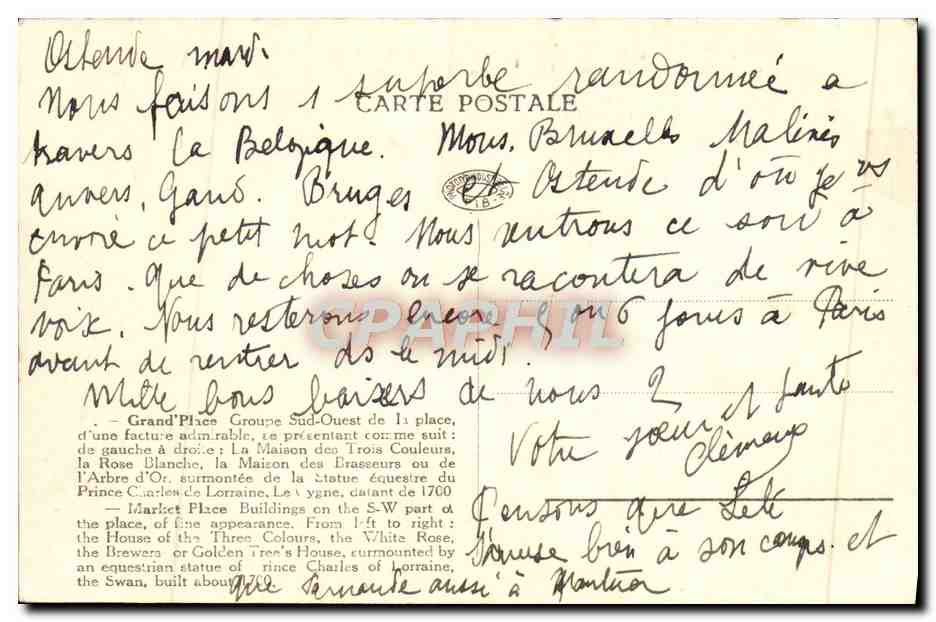 Ostende mardi
Nous faisons 1 superbe randonnée a
CARTE POSTALE
travers la Belgique. Mons, Bruxelles Malines
Anvers, Gand. Bruges et Ostende d'où je vs
envoie ce petit mot. Nous rentrons ce soir à
Paris. Que de choses on se racontera de vive
voix. Nous resterons encore 5 ou 6 jours à Paris
CPAPHIL
avant de rentrer ds le midi.
Mille bons baisers de nous 2
Votre sœur et tante
Clémence
- Grand'Place Groupe Sud-Ouest de la place,
d'une facture admirable, se présentant comme suit :
de gauche à droite : La Maison des Trois Couleurs,
la Rose Blanche, la Maison des Brasseurs ou de
l'Arbre d'Or, surmontée de la statue équestre du
Prince Charles de Lorraine, Le Cygne, datant de 1700
— Market Place Buildings on the S-W part of
the place, of fine appearance. From left to right :
the House of the Three Colours, the White Rose,
the Brewers or Golden Tree's House, surmounted by
an equestrian statue of Prince Charles of Lorraine,
the Swan, built about 1700
Pensons que
s'amuse bien à son camp. et
que aussi à